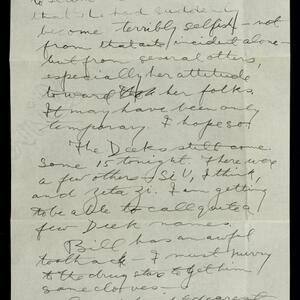 that she had suddenly
become terribly selfish — not
from that incident alone —
but from several others,
especially her attitude
toward her folks.
It may have been only
temporary. I hope so.
The Deeks still come.
Some 15 tonight. There were
a few others — I think,
and Zeta Zi. I am getting
to be able to call quite a
few Deek names.
Bill has an awful
toothache — I must hurry
to the drug store to get him
some cloves —